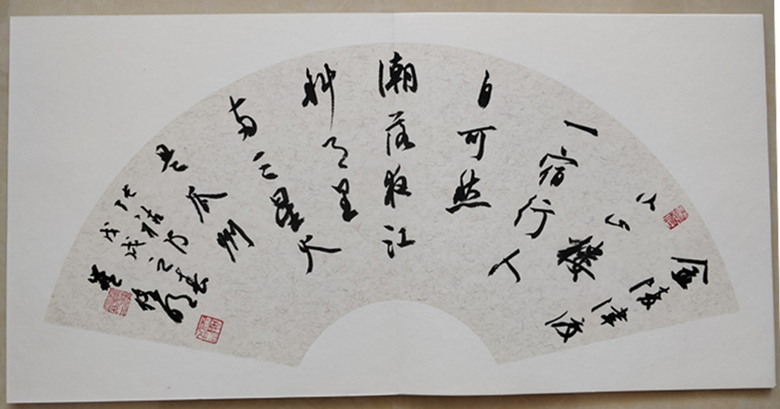 金陵津渡
小山楼
一宿行人
自可愁
潮落夜江
斜月里
两三星火
是瓜州
张祜诗
戊戌春